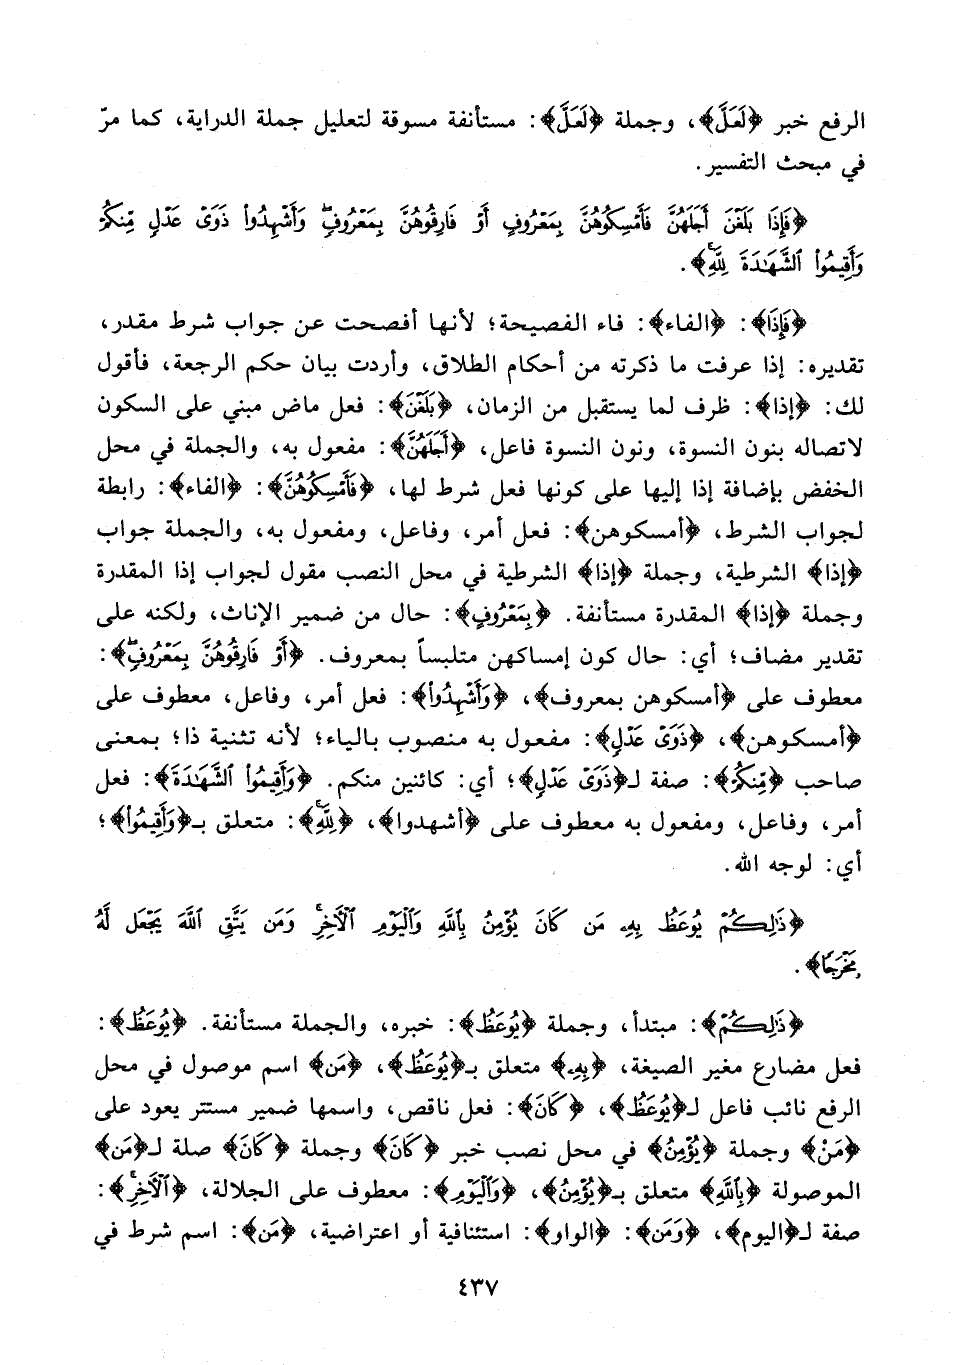 الرفع خبر ﴿لَعَلَّ﴾، وجملة ﴿لَعَلَّ﴾: مستأنفة مسوقة لتعليل جملة الدراية، كما مرّ
في مبحث التفسير.
﴿فَإِذَا بَلَغْنَ أَجَلَهُنَّ فَأَمْسِكُوهُنَّ بِمَعْرُوفٍ أَوْ فَارِقُوهُنَّ بِمَعْرُوفٍۖ وَأَشْهِدُواْ ذَوَىْ عَدْلٍ مِّنكُمْ
وَأَقِيمُواْ ٱلشَّهَٰدَةَ لِلَّهِۚ﴾.
﴿فَإِذَا﴾: ﴿الفاء﴾: فاء الفصيحة؛ لأنها أفصحت عن جواب شرط مقدر،
تقديره: إذا عرفت ما ذكرته من أحكام الطلاق، وأردت بيان حكم الرجعة، فأقول
لك: ﴿إذا﴾: ظرف لما يستقبل من الزمان، ﴿بَلَغْنَ﴾: فعل ماض مبني على السكون
لاتصاله بنون النسوة، ونون النسوة فاعل، ﴿أَجَلَهُنَّ﴾: مفعول به، والجملة في محل
الخفض بإضافة إذا إليها على كونها فعل شرط لها، ﴿فَأَمْسِكُوهُنَّ﴾: ﴿الفاء﴾: رابطة
لجواب الشرط، ﴿أمسكوهن﴾: فعل أمر، وفاعل، ومفعول به، والجملة جواب
﴿إذا﴾ الشرطية، وجملة ﴿إذا﴾ الشرطية في محل النصب مقول لجواب إذا المقدرة
وجملة ﴿إذا﴾ المقدرة مستأنفة. ﴿بِمَعْرُوفٍ﴾: حال من ضمير الإناث، ولكنه على
تقدير مضاف؛ أي: حال كون إمساكهن متلبساً بمعروف. ﴿أَوْ فَارِقُوهُنَّ بِمَعْرُوفٍۖ﴾:
معطوف على ﴿أمسكوهن بمعروف﴾، ﴿وَأَشْهِدُواْ﴾: فعل أمر، وفاعل، معطوف على
﴿أمسكوهن﴾، ﴿ذَوَىْ عَدْلٍ﴾: مفعول به منصوب بالياء؛ لأنه تثنية ذا؛ بمعنى
صاحب ﴿مِّنكُمْ﴾: صفة لـ﴿ذَوَىْ عَدْلٍ﴾؛ أي: كائنين منكم. ﴿وَأَقِيمُواْ ٱلشَّهَٰدَةَ﴾: فعل
أمر، وفاعل، ومفعول به معطوف على ﴿أشهدوا﴾، ﴿لِلَّهِۚ﴾: متعلق بـ﴿وَأَقِيمُواْ﴾؛
أي: لوجه الله.
﴿ذَٰلِكُمْ يُوعَظُ بِهِۦ مَن كَانَ يُؤْمِنُ بِٱللَّهِ وَٱلْيَوْمِ ٱلْأَخِرِۚ وَمَن يَتَّقِ ٱللَّهَ يَجْعَل لَّهُۥ
مَخْرَجًا﴾.
﴿ذَٰلِكُمْ﴾: مبتدأ، وجملة ﴿يُوعَظُ﴾: خبره، والجملة مستأنفة. ﴿يُوعَظُ﴾:
فعل مضارع مغير الصيغة، ﴿بِهِۦ﴾ متعلق بـ﴿يُوعَظُ﴾، ﴿مَن﴾ اسم موصول في محل
الرفع نائب فاعل لـ﴿يُوعَظُ﴾، ﴿كَانَ﴾: فعل ناقص، واسمها ضمير مستتر يعود على
﴿مَنْ﴾ وجملة ﴿يُؤْمِنُ﴾ في محل نصب خبر ﴿كَانَ﴾ وجملة ﴿كَانَ﴾ صلة لـ﴿مَن﴾
الموصولة ﴿بِٱللَّهِ﴾ متعلق بـ﴿يُؤْمِنُ﴾، ﴿وَٱلْيَوْمِ﴾: معطوف على الجلالة، ﴿ٱلْأَخِرِۚ﴾:
صفة لـ﴿اليوم﴾، ﴿وَمَن﴾: ﴿الواو﴾: استئنافية أو اعتراضية، ﴿مَن﴾: اسم شرط في
٤٣٧